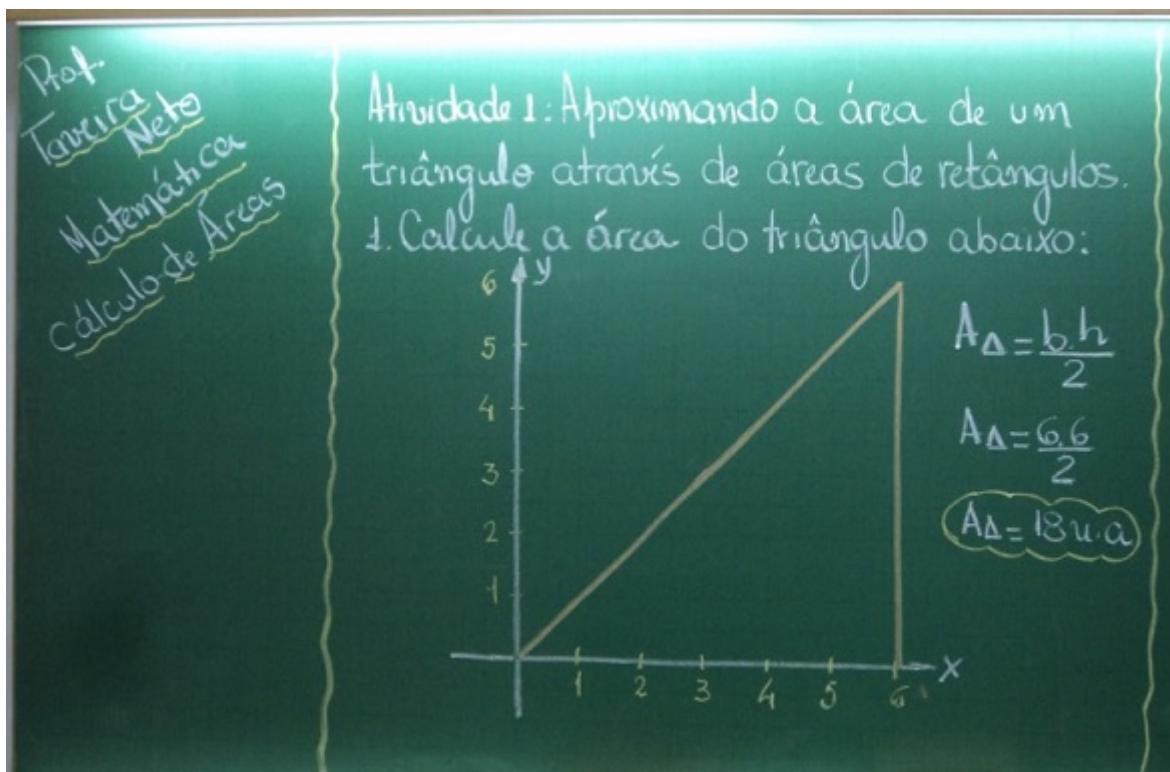 Prof.
Taveira
Neto
Matemática
Cálculo de Áreas
Atividade 1: Aproximando a área de um
triângulo através de áreas de retângulos.
1. Calcule a área do triângulo abaixo:
y
6
5
4
3
2
1
1 2 3 4 5 6
x
A∆ = b.h/2
A∆ = 6.6/2
A∆ = 18 u.a